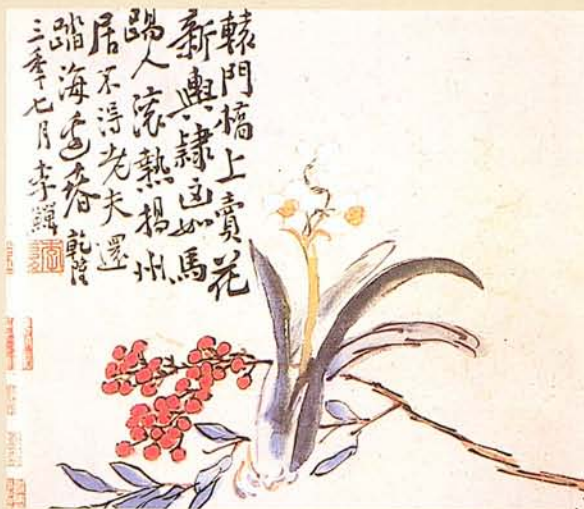 轅門橋上賣花
新輿隸凶如馬
踢人滾熱揚州
居不得老夫還
踏海邊春乾隆
三年七月李鱓